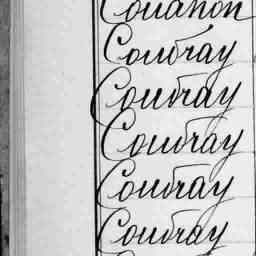 Couanon
Coudray
Coudray
Coudray
Coudray
Coudray